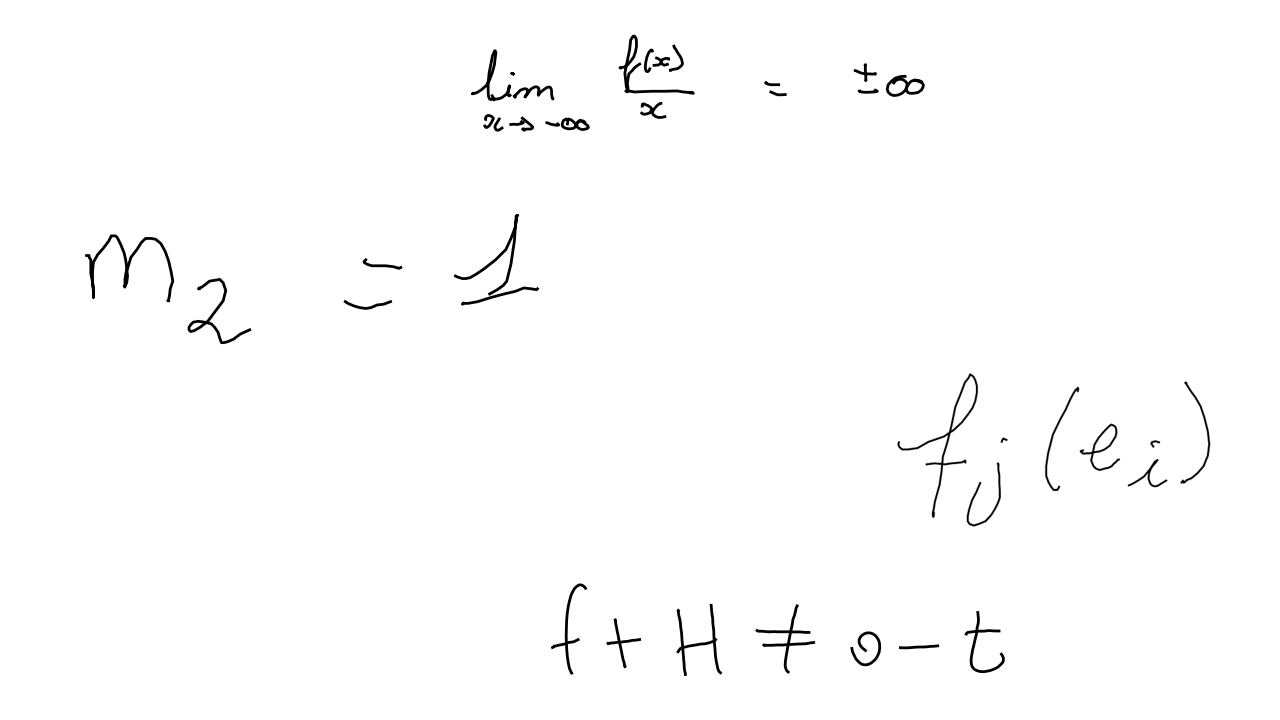 \lim_{x \to -\infty} \frac{f(x)}{x} = \pm\infty
m_2 = 1
f_j(e_i)
f + H \neq 0 - t